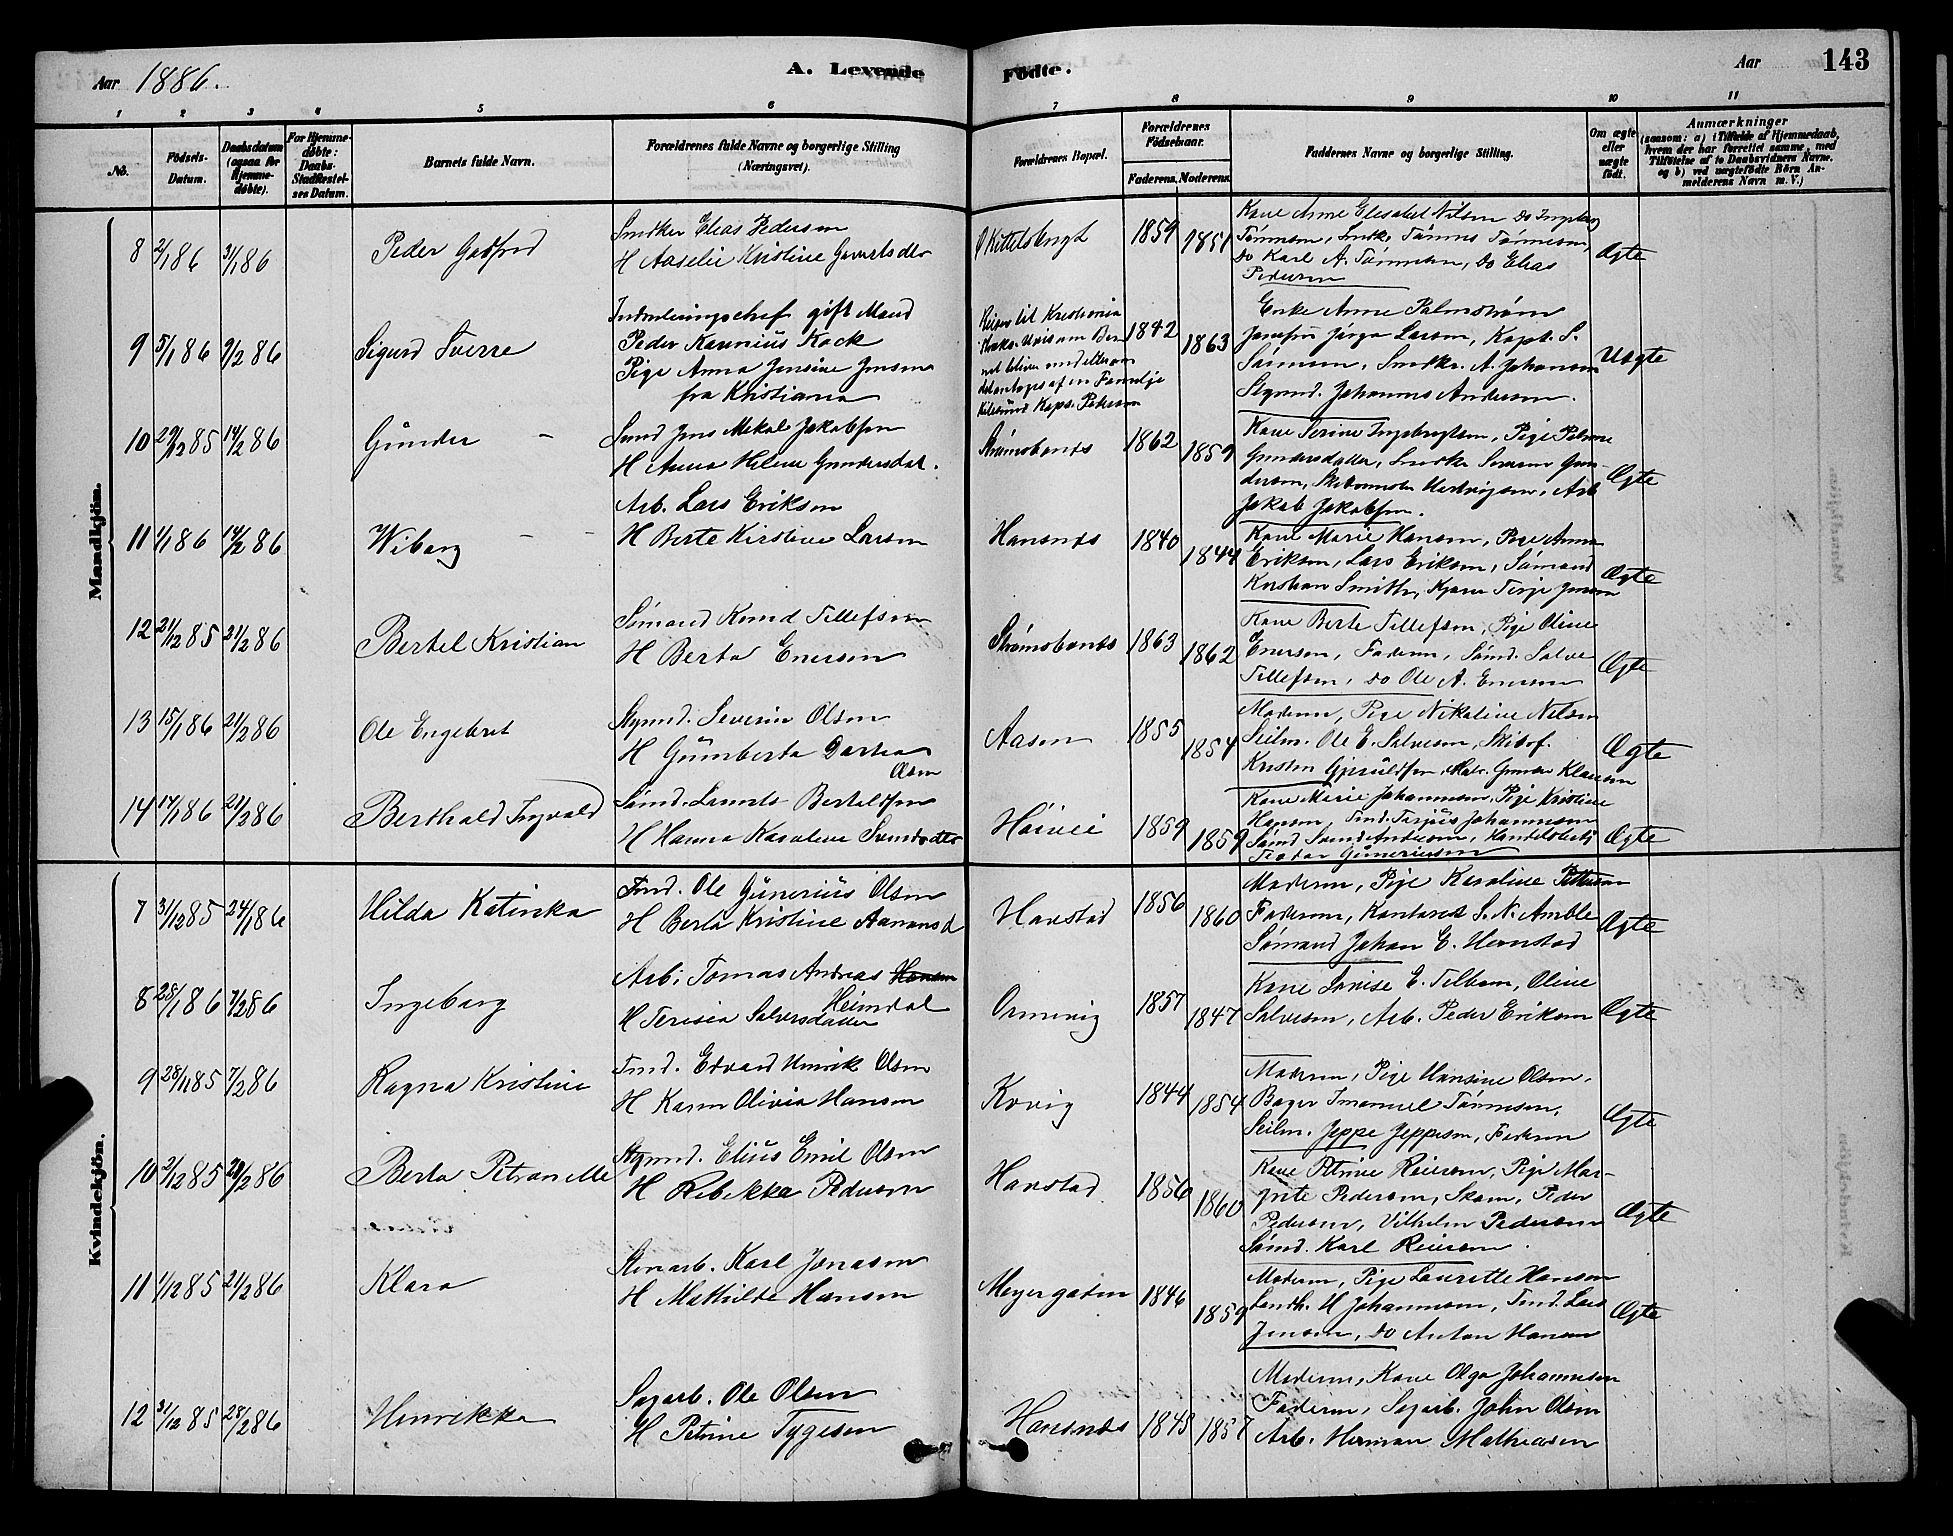 Aar 1886.
A. Levende Födte.
Aar
143
1 2 3 4 5 6 7 8 9 10 11
No.
Födsels-Datum.
Daabsdatum (ogsaa for Hjemmedöbte).
For Hjemmedöbte: Daabs-Stadfæstelses Datum.
Barnets fulde Navn.
Forældrenes fulde Navne og borgerlige Stilling (Næringsvei).
Forældrenes Bopæl.
Forældrenes Födselsaar.
Faderens. Moderens.
Faddernes Navne og borgerlige Stilling.
Om ægte eller uægte födt.
Anmærkninger
(saasom: a) i Tilfælde af Hjemmedaab, hvem der har forrettet samme, med Tilföielse af to Daabsvidners Navne, og b) ved uægtefödte Börn Anmelderens Navn m. V.)
Mandkjön.
8 2/1 86 31/1 86 Peder Godfred
Smdker Elias Pedersen
H Aaselie Kristine Gavertsdtr
Kittelsbugt 1859 1851
Kone Anne Elisabet Nilsen Do Ingeborg
Tönnesen, Smdk. Tönnes Tönnesen,
Do Karl A. Tönnesen, Do Elias
Pedersen
Ægte
9 5/1 86 9/2 86 Sigurd Sverre
gift Mand
Peder Kock
Pige Anna Jensine Jensen
fra Kristiania
Reiser til Kristiania
1842 1863
Enke Anne Palmström
Jomfru Larsen, Kapt. S.
Sörensen, Smdkr. A. Johansen
Stymd. Johannes Andersen.
Uægte
10 29/12 85 14/2 86 Günder
Smd Jens Mekal Jakobsen
H Anna Helene Gundersdat.
Strömsbonæs 1862 1859
Kone Serine Ingebregtsen, Pige
Gundersdatter, Smdkr Gun-
dersen, Arb
Jakob Jakobsen.
Ægte
11 1/1 86 14/2 86 Wiborg
Arb. Lars Eriksen
H Berte Kirstine Larsen
Havsnæs 1840 1844
Kone Marie Hansen, Pige Anna
Eriksen, Lars Eriksen, Sömand
Kristian Smith, Terje Jensen
Ægte
12 21/12 85 21/2 86 Bertel Kristian
Sömand Knud Tellefsen
H Berta Enersen
Strömsbonæs 1863 1862
Kone Berte Tellefsen, Pige Oline
Enersen, Faderen, Sömd. Salve
Tellefsen, Do Ole A. Enersen
Ægte
13 15/1 86 21/2 86 Ole Engebret
Stymd. Severin Olsen
H Gümberta Dortea
Olsen
Aasen 1855 1854
Moderen, Pige Nikoline Nilsen
Seilm. Ole E. Salvesen, Skibsf.
Kristen Gjeruldsen, Matr. Gunder Klausen
Ægte
14 14/1 86 21/2 86 Berthold Ingvald
Sömd. Laurits Bertelsen
H Hanna Karoline Svendsdtr
Höivei 1859 1859
Kone Marie Johannesen, Pige Kristine
Hansen, Tmd. Terjus Johannesen
Sömd Svend Andersen, Handelsbetj
Teodor Günerüssen
Ægte
Kvindekjön.
7 31/12 85 24/1 86 Hilda Katinka
Tmd. Ole Günerius Olsen
H Berta Kristine Aanonsd
Havstad 1856 1860
Moderen, Pige Karoline Pettersen
Faderen, Kontorist S. N. Amble
Sömand Johan E. Hernstad
Ægte
8 28/1 86 7/2 86 Ingeborg
Arb. Tomas Andreas Hansen
Heimdal
H Teresia Salvesdatter
Ormevig 1857 1847
Kone Lovise E. Tellesen, Oline
Salvesen, Arb. Peder Eriksen
Ægte
9 28/11 85 7/2 86 Ragna Kristine
Tmd. Edvard Henrik Olsen
H Karen Olivia Hansen
Kovig 1844 1854
Moderen, Pige Hansine Olsen,
Bager Imanuel Tönnesen,
Seilm. Jeppe Jeppesen, Faderen
Ægte
10 2/12 85 21/2 86 Berta Petronelle
Stymd. Elius Emil Olsen
H Rebekka Pedersen
Havstad 1856 1860
Kone Petrine Reiersen, Pige Mar-
grete Pedersen, Skom. Peder
Pedersen, Vilhelm Pedersen
Sömd. Karl Reiersen.
Ægte
11 1/12 85 21/2 86 Klara
Stenarb. Karl Jonasen
H Mathilde Hansen
Meyergaden 1846 1859
Moderen, Pige Laurette Hansen
Landh. H Johannesen, Tmd. Lars
Jensen, Do Anton Hansen
Ægte
12 31/12 85 28/2 86 Henrikka
Sagarb. Ole Olsen
H Petrine Tygesen
Havsnæs 1845 1857
Moderen, Kone Olga Johannesen
Faderen, Sagarb. John Olsen
Arb. Herman Mathiasen